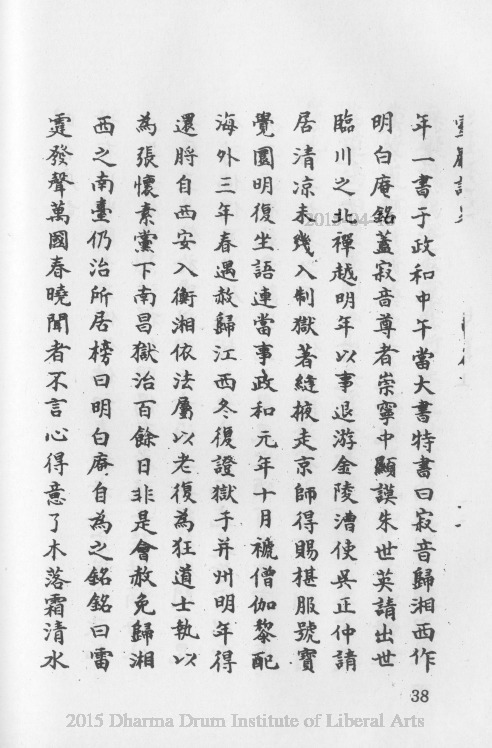 年一書于政和中午當大書特書曰寂音歸湘西作
明白庵銘蓋寂音尊者崇寧中顯謨朱世英請出世
臨川之北禪越明年以事退游金陵漕使吳正仲請
居清凉未幾入制獄著縫掖走京師得賜椹服號寶
覺圜明復坐語連當事政和元年十月褫僧伽黎配
海外三年春遇赦歸江西冬復證獄于并州明年得
還將自西安入衡湘依法屬以老復為狂道士執以
為張懷素黨下南昌獄治百餘日非是會赦免歸湘
西之南臺仍治所居榜曰明白庵自為之銘銘曰雷
霆發聲萬國春曉聞者不言心得意了木落霜清水
38
2015 Dharma Drum Institute of Liberal Arts